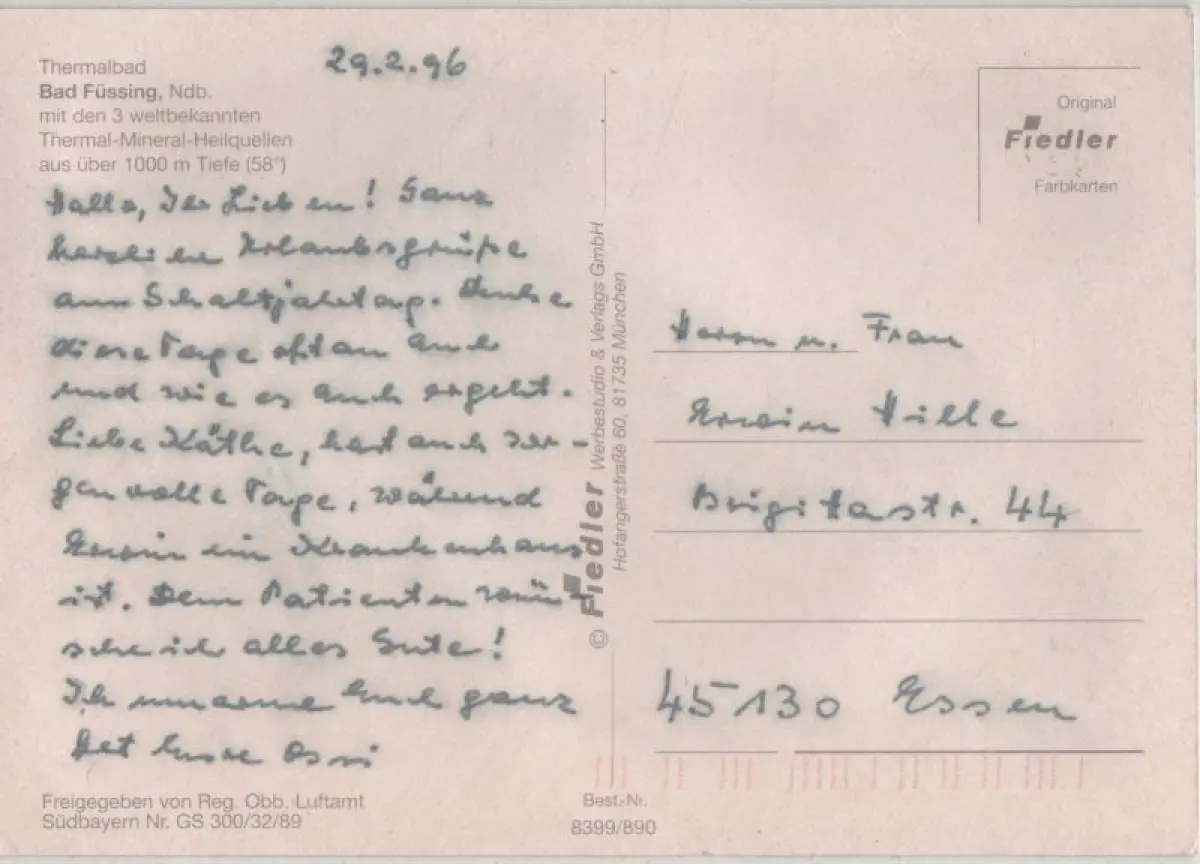 29.2.96
Thermalbad
Bad Füssing, Ndb.
mit den 3 weltbekannten
Thermal-Mineral-Heilquellen
aus über 1000 m Tiefe (58°)
Hallo, Ihr Lieben! Ganz
herzliche Urlaubsgrüße
am Schaltjahrtag. Denke
diese Tage oft an Euch
und wie es Euch ergeht.
Liebe Käthe, hast auch sor-
genvolle Tage, während
Erwin im Krankenhaus
ist. Dem Patienten wün-
sche ich alles Gute!
Ich umarme Euch ganz
Eure Ossi
Freigegeben von Reg. Obb. Luftamt
Südbayern Nr. GS 300/32/89
© Fiedler Werbestudio & Verlags GmbH
Hofangerstraße 60, 81735 München
Best.-Nr.
8399/890
Original
Fiedler
Farbkarten
Herrn u. Frau
Erwin Hille
Brigitastr. 44
45130 Essen